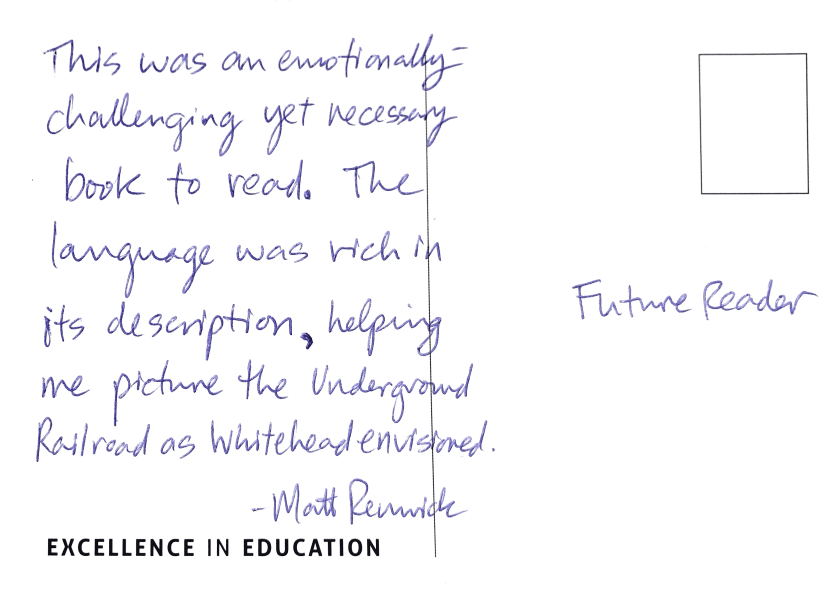 This was an emotionally-
challenging yet necessary
book to read. The
language was rich in
its description, helping
me picture the Underground
Railroad as Whitehead envisioned.
-Matt Renwick
EXCELLENCE IN EDUCATION
Future Reader